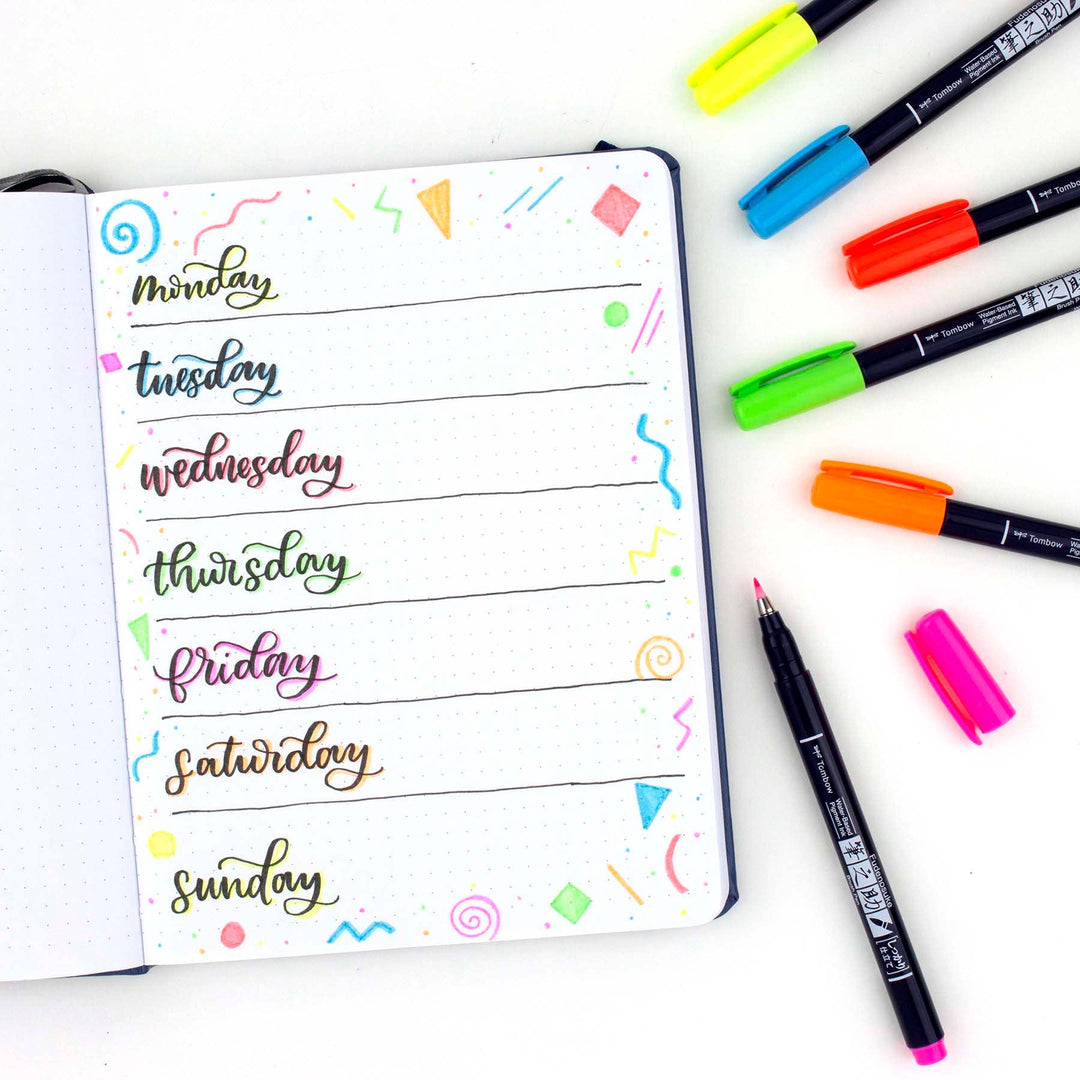 monday
tuesday
wednesday
thursday
friday
saturday
sunday
Fudenosuke
筆之助
Brush Pen
Water-Based
Pigment Ink
Tombow
Tombow
筆之助
Brush Pen
Water-Based
Pigment Ink
Tombow
Tombow
Tombow
Water-Based
Pigment Ink
筆之助
Fudenosuke
しっかり
仕立て